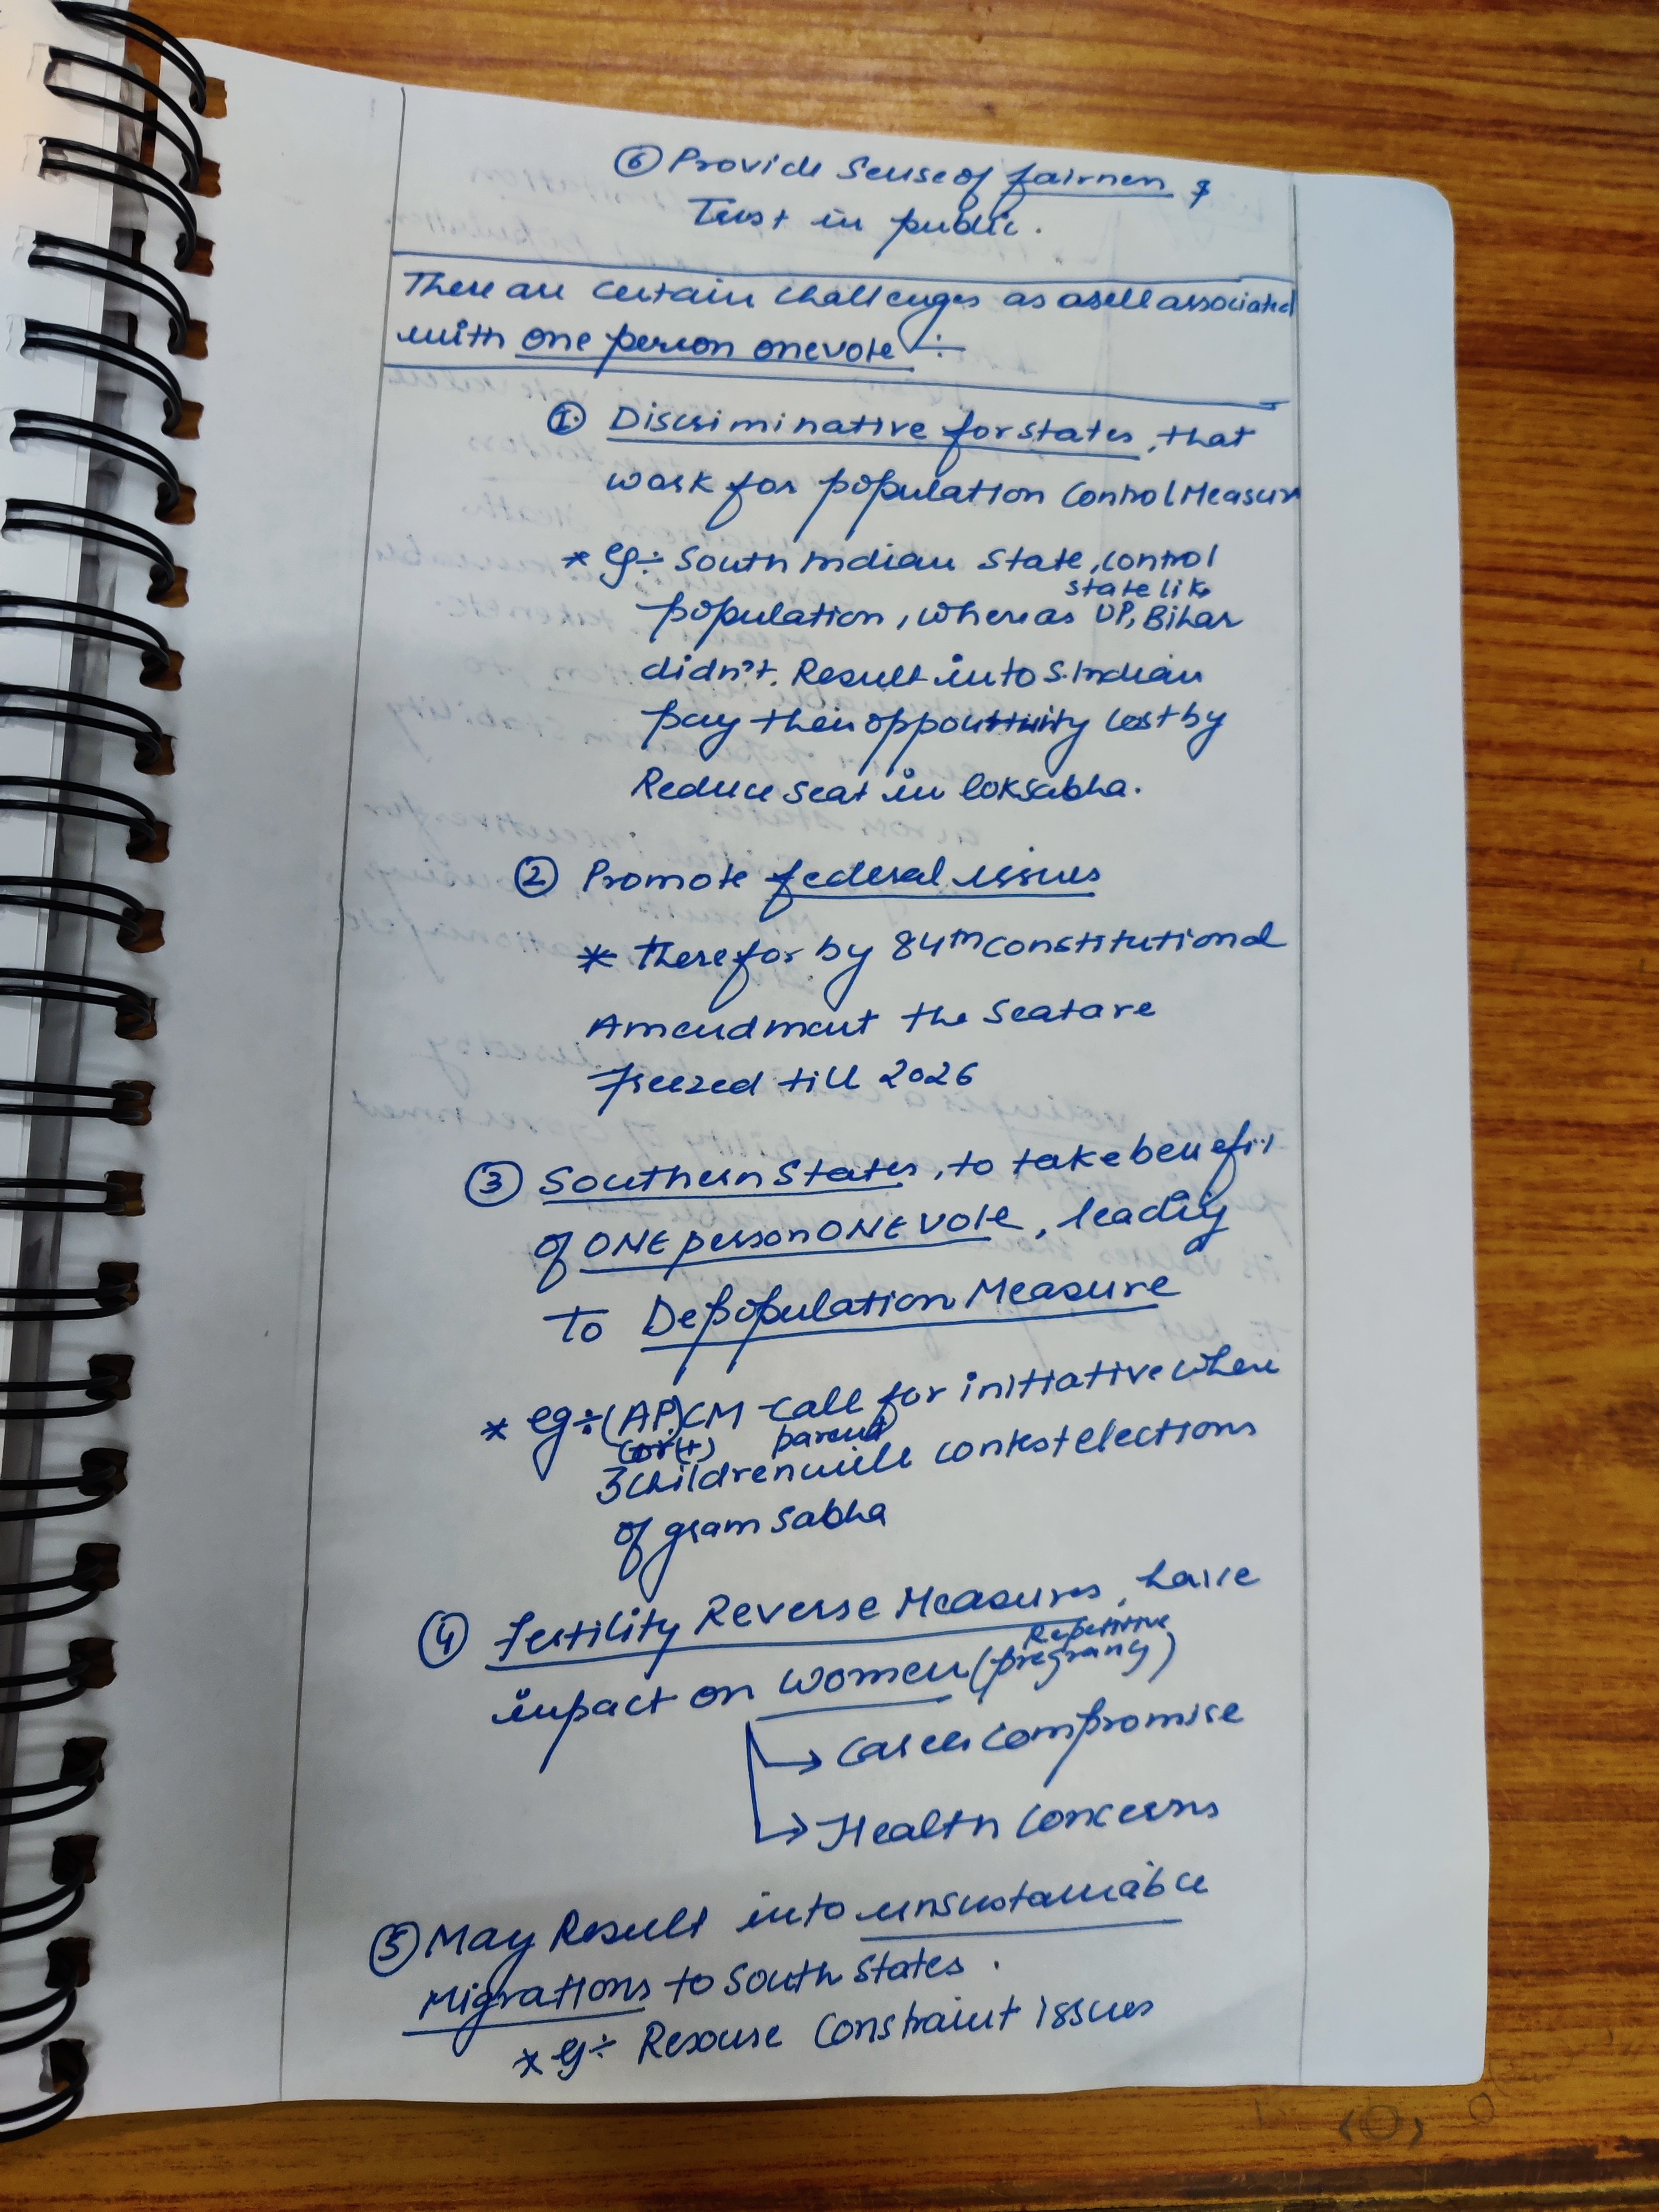 ⑥ Provide Sense of fairnen &
Trust in public.
There are certain challenges as asell associated
with one person one vote :-
① Discriminative for states, that
work for population Control Measur
* eg÷ South Indian State, control
state like
population, whereas UP, Bihar
didn't. Result into S.Indian
pay their opportunity cost by
Reduce seat in loksabha.
② Promote federal issues
* therefor by 84th constitutional
Amendment the Seat are
freezed till 2026
③ Southern States, to take benefit
of ONE person ONE vote, leading
to Depopulation Measure
* eg÷ (AP) CM call for initiative where
parent
3 children will contest elections
of gram sabha
④ Fertility Reverse Measures, have
Repetitive
impact on women (pregnancy)
→ Career compromise
→ Health Concerns
⑤ May Result into unsustainable
Migrations to South States.
* eg÷ Resouse Constraint issues